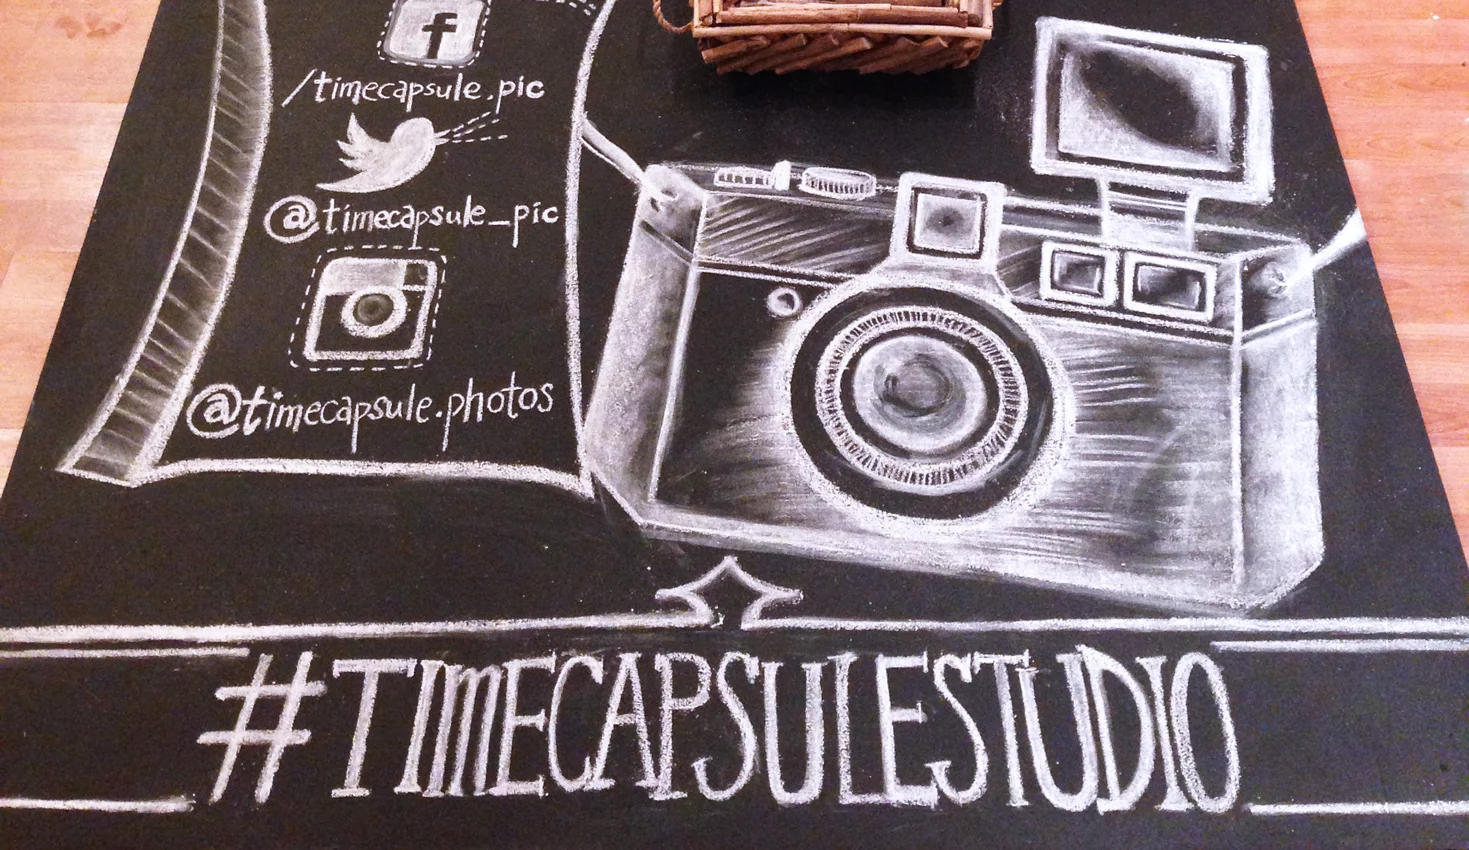 f
/timecapsule.pic
@timecapsule_pic
@timecapsule.photos
#TIMECAPSULESTUDIO